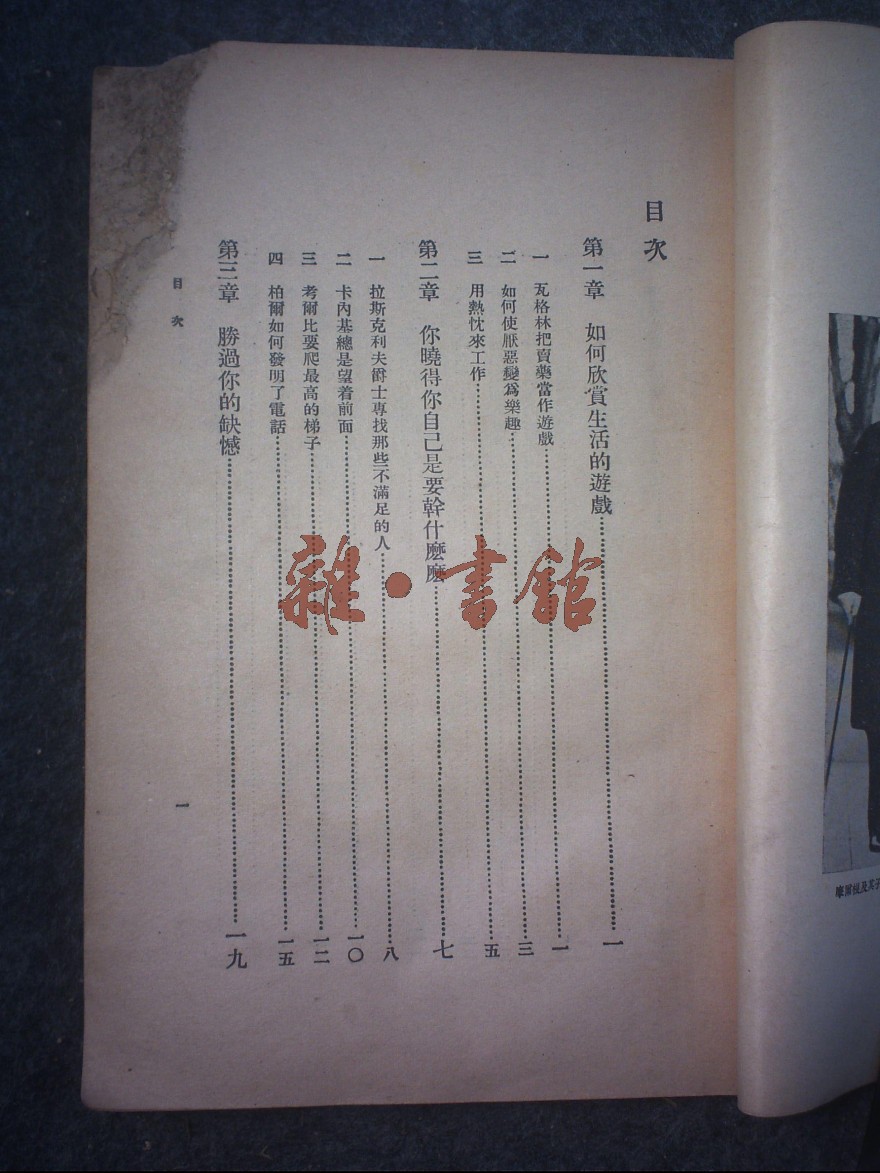 目次
第一章　如何欣賞生活的遊戲……一
一　瓦格林把賣藥當作遊戲……一
二　如何使厭惡變爲樂趣……三
三　用熱忱來工作……五
第二章　你曉得你自己是要幹什麼麽……七
一　拉斯克利夫爵士專找那些不滿足的人……八
二　卡內基總是望着前面……一〇
三　考爾比要爬最高的梯子……一二
四　柏爾如何發明了電話……一五
第三章　勝過你的缺憾……一九
目次
一
雜·書館